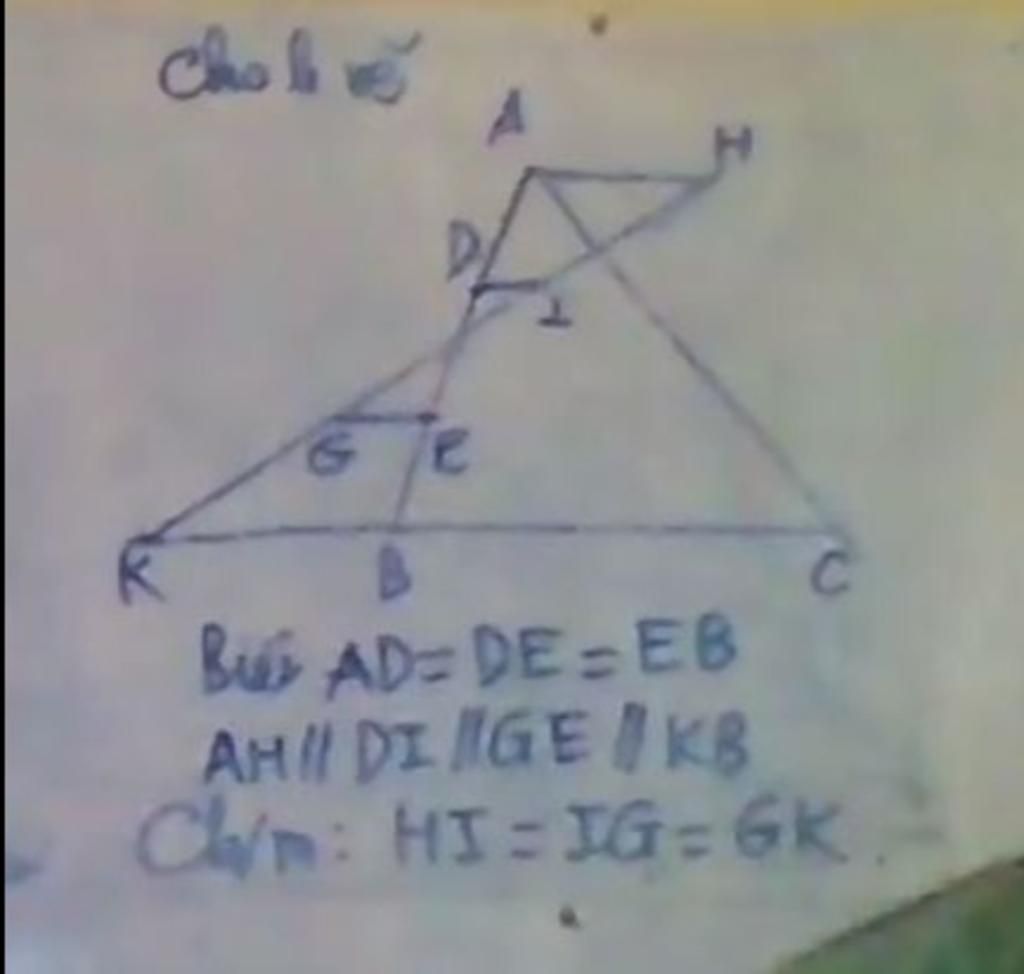 Cho h vẽ
A
H
D
I
G E
K B C
Biết AD = DE = EB
AH // DI // GE // KB
Ch/m: HI = IG = GK.